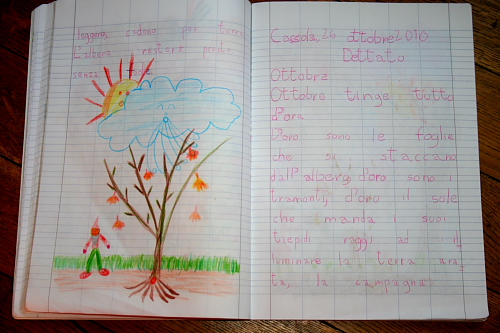 leggero, cadono per terra.
L'albero resterà
senza
Cassola, 26 ottobre 2010
Dettato
Ottobre
Ottobre tinge tutto
d'oro.
D'oro sono le foglie
che si staccano
dall'albero, d'oro sono i
tramonti, d'oro il sole
che manda i suoi
tiepidi raggi ad il
luminare la terra ara
ta, la campagna